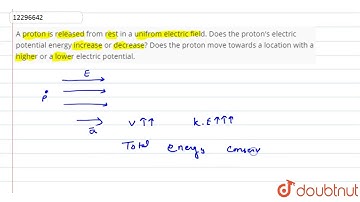 12296642
A proton is released from rest in a unifrom electric field. Does the proton's electric
potential energy increase or decrease? Does the proton move towards a location with a
higher or a lower electric potential.
E
P
a
v↑↑ K.E↑↑↑
Total energy conserv
doubtnut